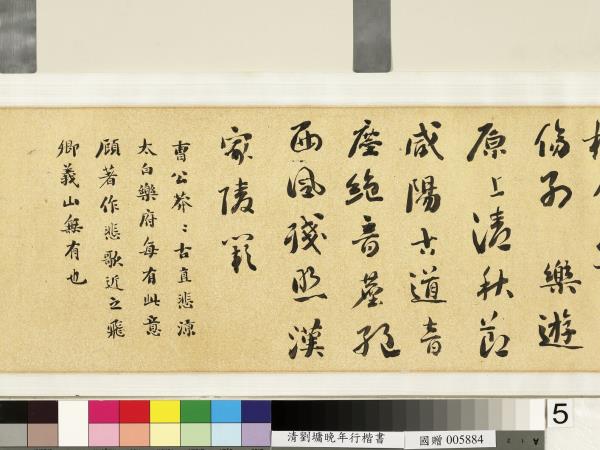 傷別 樂遊
原上清秋節
咸陽古道音
塵絕音塵絕
西風殘照漢
家陵闕
曹公莽〻古直悲涼
太白樂府每有此意
顧著作悲歌近之飛
卿義山無有也
清劉墉晚年行楷書
國贈 005884
5